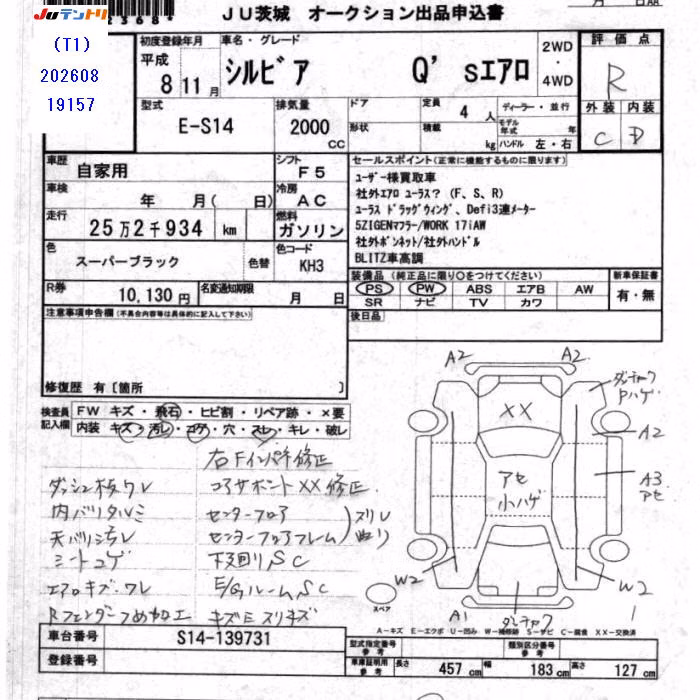 JU茨城 オークション出品申込書
Juテントリ
(T1)
202608
19157
初度登録年月 車名・グレード 2WD・4WD 評価点
平成 8年11月 シルビア Q's エアロ R
外装 内装
C D
型式 排気量 ドア 定員 ディーラー・並行
E-S14 2000 CC 形状 4人 積載 kg モデル年式 年 ハンドル 左・右
車歴 自家用 シフト F5
車検 年 月( 日) 冷房 AC
走行 25万2千934 km 燃料 ガソリン
色 スーパーブラック 色替 色コード KH3
R券 10,130円 名変通知期限 月 日
セールスポイント(正常に機能するものに限ります)
ユーザー様買取車
社外エアロ ユーラス? (F、S、R)
ユーラス ドラッグウィング、Defi3連メーター
5ZIGENマフラー/WORK 17iAW
社外ボンネット/社外ハンドル
BLITZ車高調
装備品(純正品に限り○をつけてください) 新車保証書
PS PW ABS エアB AW 有・無
SR ナビ TV カワ
後日品
注意事項申告欄(不具合内容等は具体的に記入して下さい)
修復歴 有〔箇所 〕
検査員記入欄 FW キズ・飛石・ヒビ割・リペア跡・×要
内装 キズ・汚レ・コゲ・穴・スレ・キレ・破レ
右Fインパネ修正
ダッシュ板ワレ コアサポートXX修正
内バリタルミ センターフロア
天バリ汚レ センターフロアフレーム スリレ
シートコゲ 下廻りSC
エアロキズ・ワレ E/GルームSC
Rフェンダーツメ加工 キズミスリキズ
A2 A2
XX Pハゲ
A2
アセ A3
小ハゲ アセ
W2 W2
A1
スペア
A-キズ E-エクボ U-凹み W-補修跡 S-サビ C-腐食 XX-交換済
車台番号 S14-139731
登録番号
型式指定番号 参考 類別区分番号 参考
車庫証明用 参考 長さ 457 cm 幅 183 cm 高さ 127 cm